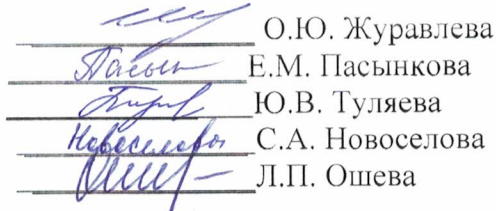 О.Ю. Журавлева
Пасын Е.М. Пасынкова
Ю.В. Туляева
Новоселова С.А. Новоселова
Л.П. Ошева